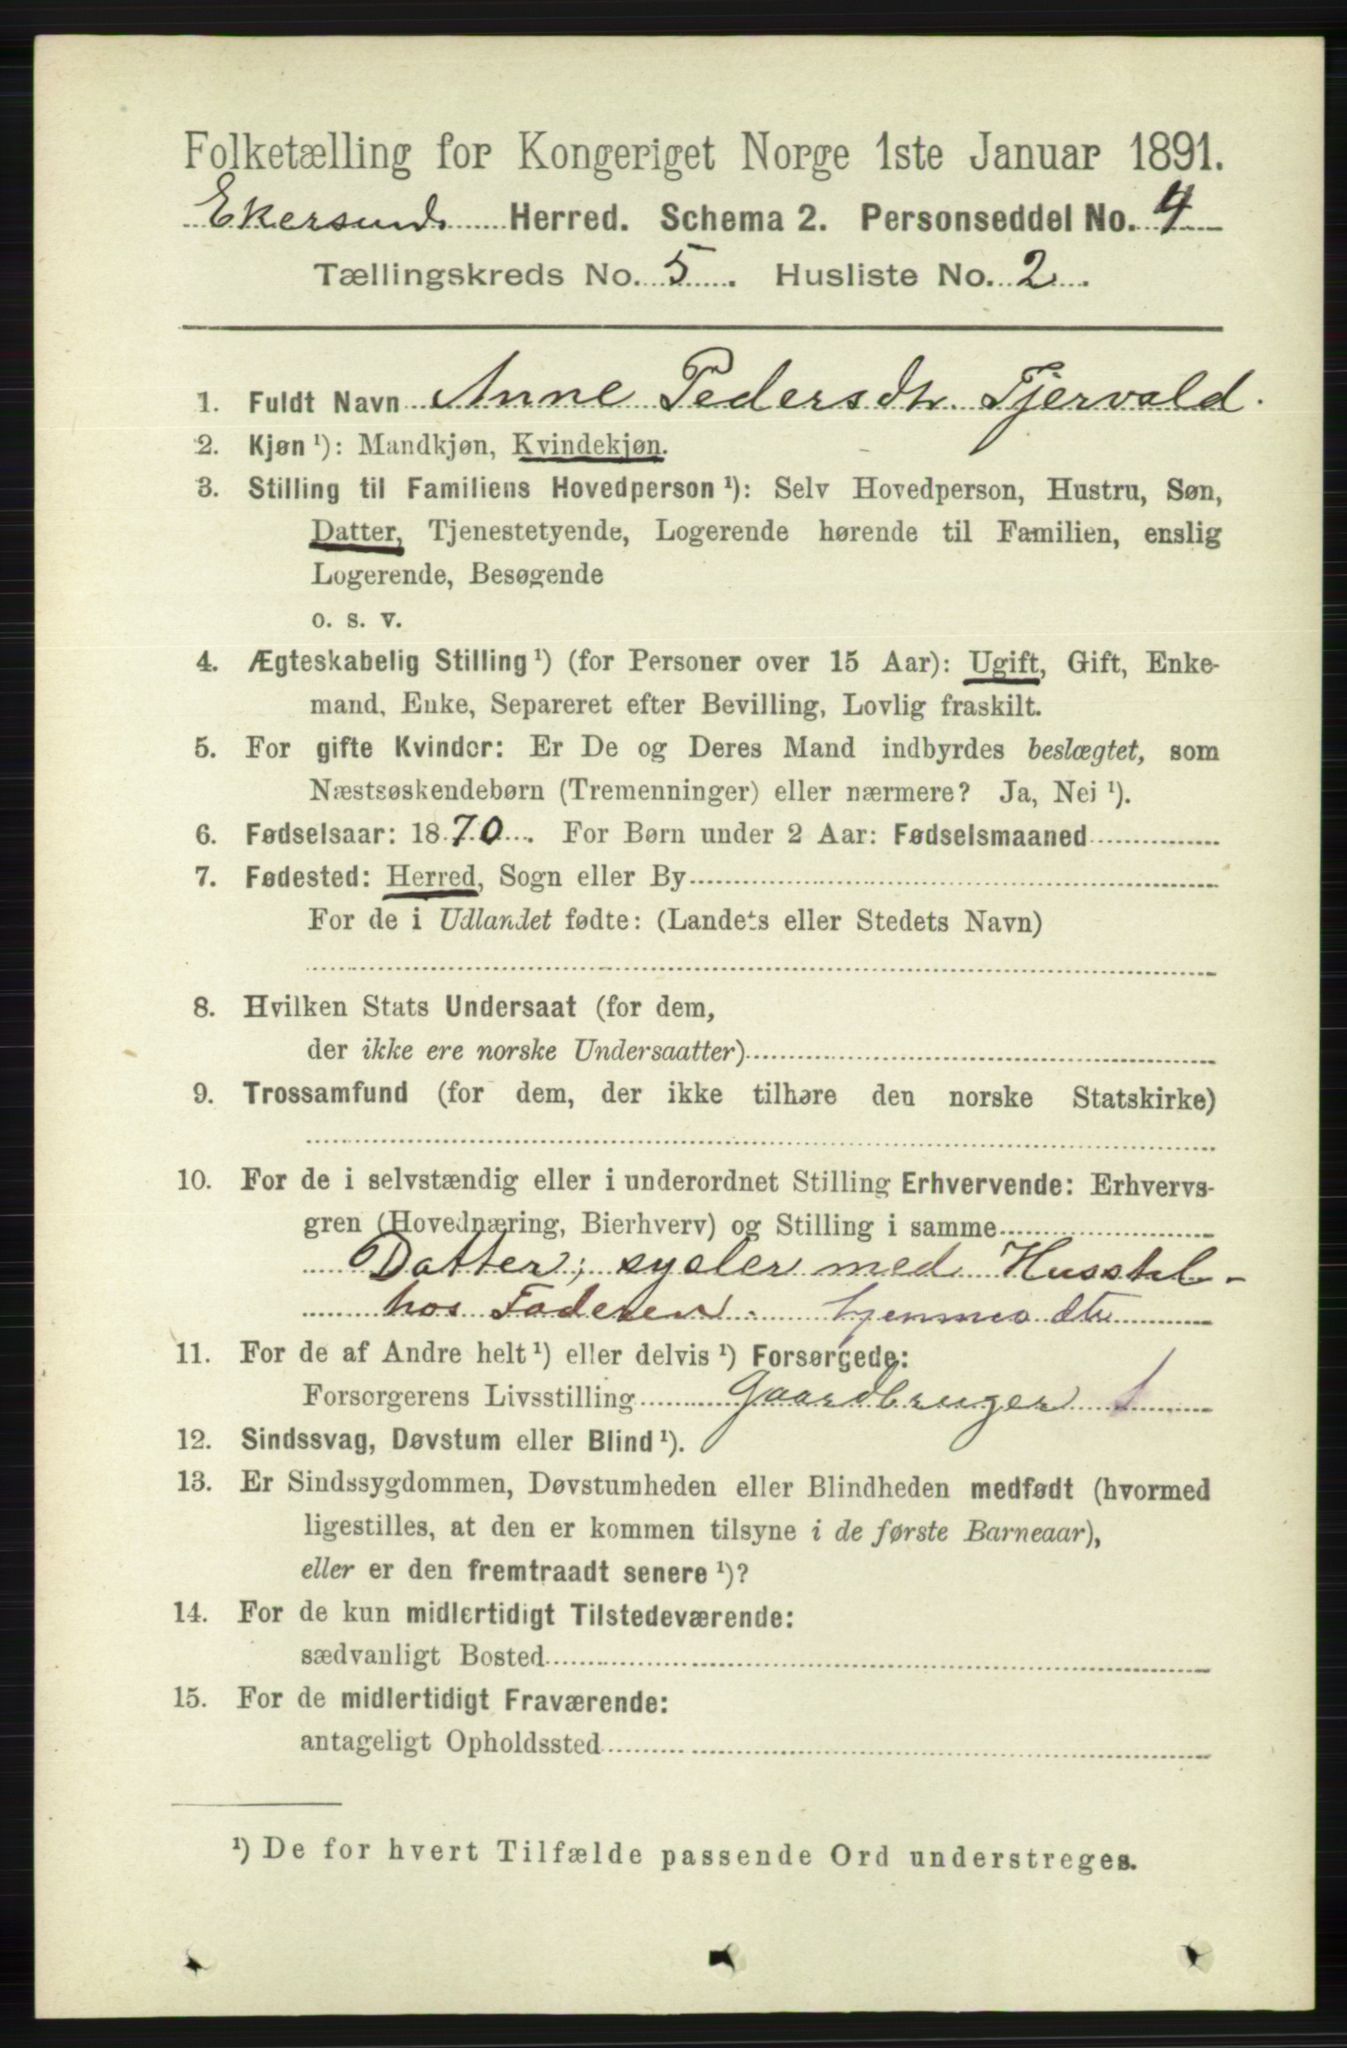 Folketælling for Kongeriget Norge 1ste Januar 1891.
Ekersund Herred. Schema 2. Personseddel No. 4
Tællingskreds No. 5. Husliste No. 2.
1. Fuldt Navn Anne Pedersdtr. Tjervald.
2. Kjøn ¹): Mandkjøn, Kvindekjøn.
3. Stilling til Familiens Hovedperson ¹): Selv Hovedperson, Hustru, Søn,
Datter, Tjenestetyende, Logerende hørende til Familien, enslig
Logerende, Besøgende
o. s. v.
4. Ægteskabelig Stilling ¹) (for Personer over 15 Aar): Ugift, Gift, Enke-
mand, Enke, Separeret efter Bevilling, Lovlig fraskilt.
5. For gifte Kvinder: Er De og Deres Mand indbyrdes beslægtet, som
Næstsøskendebørn (Tremenninger) eller nærmere? Ja, Nei ¹).
6. Fødselsaar: 1870. For Børn under 2 Aar: Fødselsmaaned
7. Fødested: Herred, Sogn eller By
For de i Udlandet fødte: (Landets eller Stedets Navn)
8. Hvilken Stats Undersaat (for dem,
der ikke ere norske Undersaatter)
9. Trossamfund (for dem, der ikke tilhøre den norske Statskirke)
10. For de i selvstændig eller i underordnet Stilling Erhvervende: Erhvervs-
gren (Hovednæring, Bierhverv) og Stilling i samme
Datter, sysler med Husstel
hos Faderen. hjemmedtr
11. For de af Andre helt ¹) eller delvis ¹) Forsørgede:
Forsørgerens Livsstilling Gaardbruger
12. Sindssvag, Døvstum eller Blind ¹).
13. Er Sindssygdommen, Døvstumheden eller Blindheden medfødt (hvormed
ligestilles, at den er kommen tilsyne i de første Barneaar),
eller er den fremtraadt senere ¹)?
14. For de kun midlertidigt Tilstedeværende:
sædvanligt Bosted
15. For de midlertidigt Fraværende:
antageligt Opholdssted
¹) De for hvert Tilfælde passende Ord understreges.